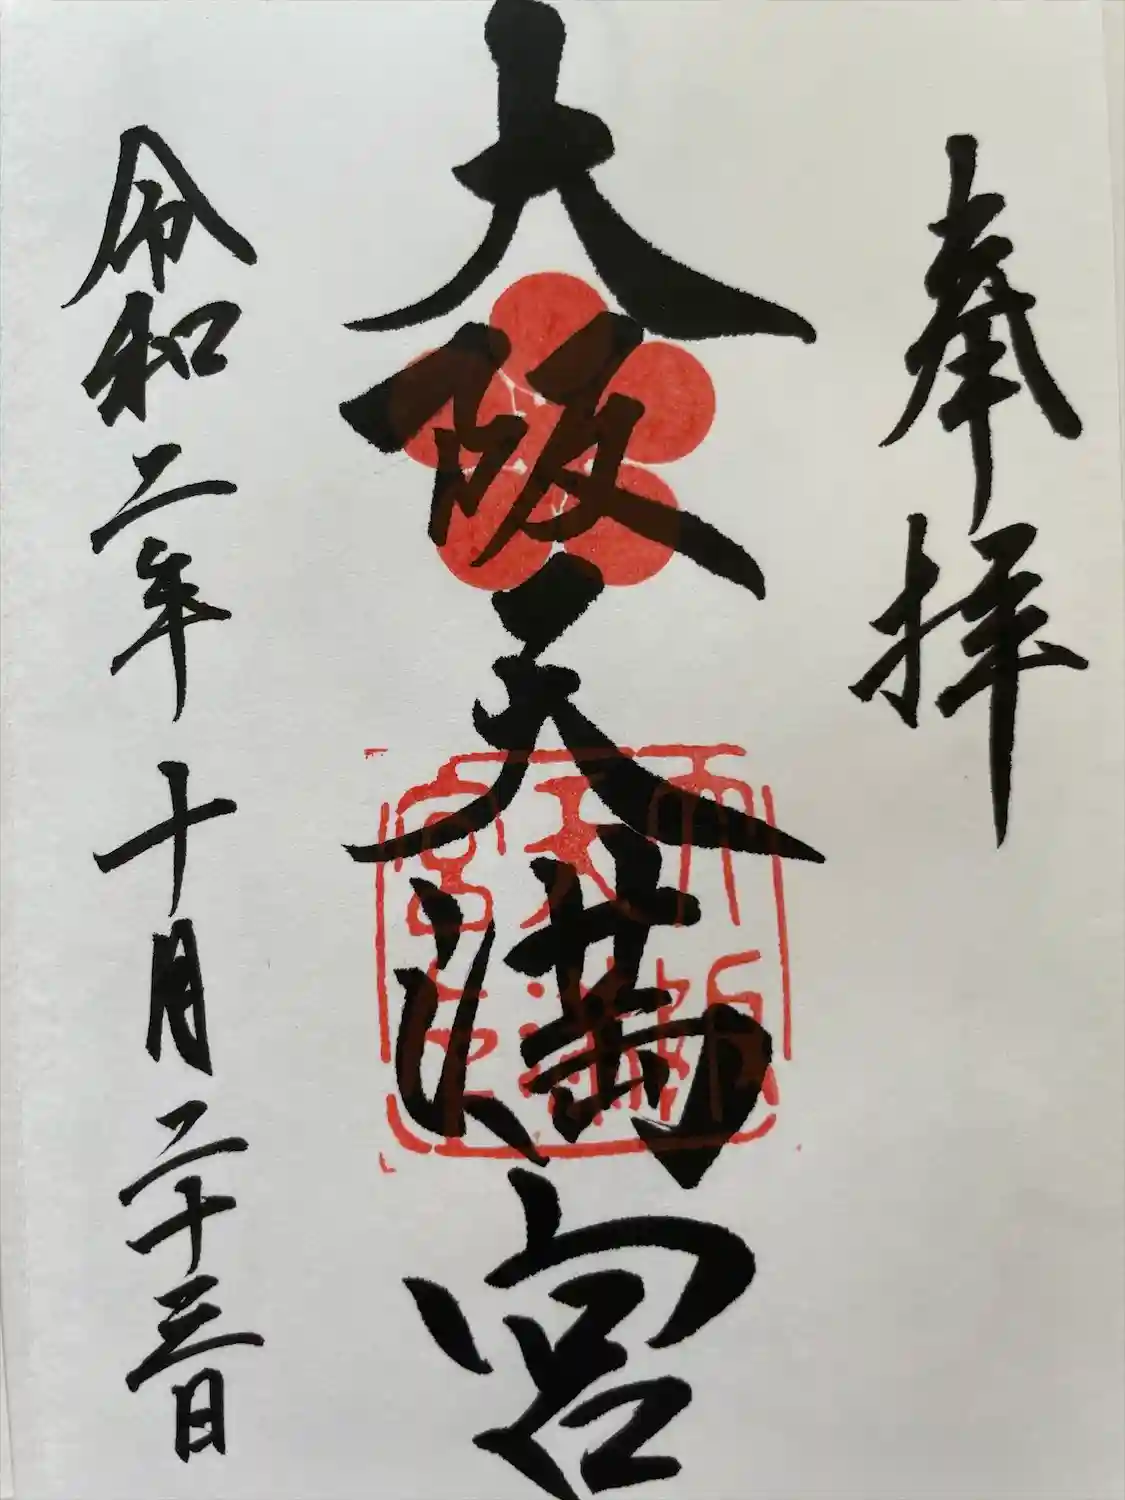 奉拝
大阪天満宮
大阪天満宮之印
令和二年十月二十三日